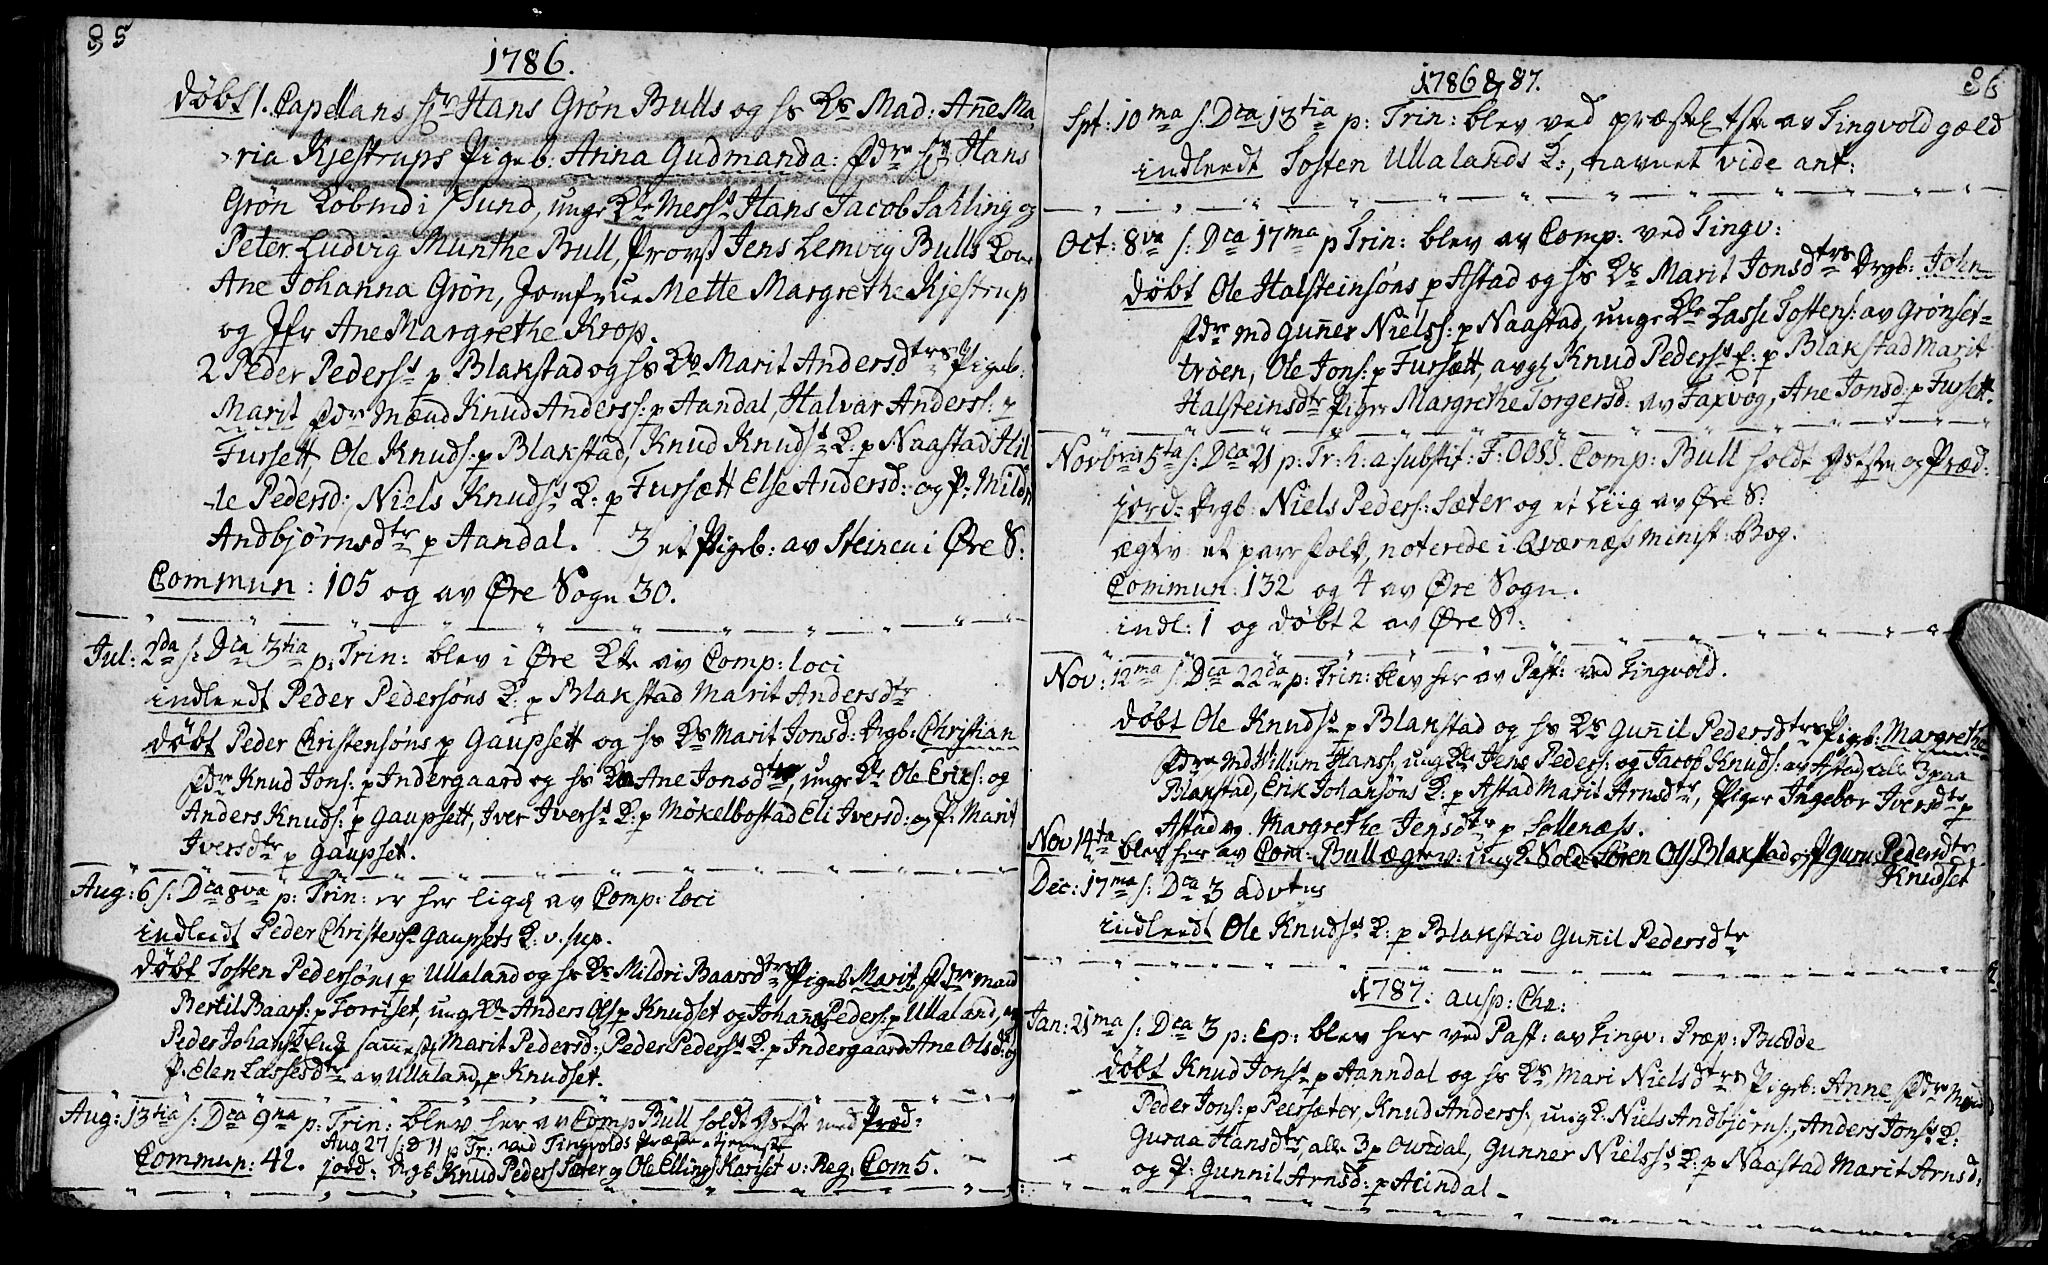 85
1786.
døbt 1. Capellans Hr Hans Grøn Bulls og hs Ks Mad: Anne Ma
ria Kjestrups Pigeb: Anna Gudmanda: Fdre Hr Hans
Grøn Kobmd i Sund, unge Kle Merss Hans Jacob Sahling og
Peter Ludvig Munthe Bull, Provst Jens Lemvig Bulls Kone
Ane Johanna Grøn, Jomfrue Mette Margrethe Kjestrup
og Jfr Ane Margrethe Krop.
2 Peder Peders: p Blakstad og hs Ks Marit Andersdtrs Pigeb:
Marit Fdr Mænd Knud Anders: p Aandal, Halvar Anders: p
Fursett, Ole Knuds: p Blakstad, Knud Knuds K: p Naastad Hil
de Pedersd: Niels Knuds K: p Fursætt Else Andersd: og P: Mildri
Andbjørnsdtr p Aandal. 3 et Pigeb: av Steinen i Øre S:
Commun: 105 og av Øre Sogn 30.
Jul: 2da s: Dca 3tia p: Trin: blev i Øre Kke av Comp: loci
indleedt Peder Pedersøns K: p Blakstad Marit Andersdtr
døbt Peder Christensøns p Gaupsett og hs Ks Marit Jonsd: Drgb: Christian
Fdre Knud Jons: p Indergaard og hs K Ane Jonsdtr, unge Kle Ole Eriks: og
Anders Knuds: p Gaupsett, Iver Ivers K: p Mökelbostad Eli Iversd: og P: Marit
Iversdtr p Gaupset.
Aug: 6 s: Dca 8va p: Trin: er her lig av Comp: loci
indleedt Peder Christens Gaupsets K: v. sup.
døbt Tosten Pedersøns p Ullaland og hs Ks Mildri Baarsdtrs Pigeb Marit, Fdre Mænd
Bertil Baars: p Torriset, unge Kle Anders Ols p Knudset og Johannes Peders: p Ullaland,
Peder Johans sammest: Marit Pedersd: Peder Peders K: p Indergaard Ane Olsd: og
P: Elen Lassesdtr av Ullaland, p Knudset.
Aug: 13tia s: Dca 9na p: Trin: blev her av Comp Bull holdt med Præd:
Aug 27 s: D 11 p Tr: ved Tingvolds
Commun: 42. jord: Drgb Knud Peders Sæter og Ole Ellings: Kariset v: Reg: Com 5.
1786 & 87.
86
Spt: 10ma s: Dca 13tia p: Trin: blev ved av Tingvold gæld
indleedt Tosten Ullalands K:, navnet vide ant:
Oct: 8va s: Dca 17ma p Trin: blev av Comp: ved Tingv:
døbt Ole Halsteinsöns p Astad og hs Ks Marit Jonsdtrs Drgb: John
Fdre md Gunner Niels: p Naastad, unge Kle Lasse Tostens: av Grönset=
trøen, Ole Jons: p Fursætt, Knud Peders: p Blakstad Marit
Halsteinsdtr Piger Margrethe Torgersd: av Faxvog, Ane Jonsd: p Fursett.
Novbris 5ta s: Dca 21 p: Tr: h: a: substit: F: OOSS. Comp: Bull holdt og Præd:
jord: Drgb: Niels Peders: Sæter og et Liig av Øre S:
ægtv: et parr folk, noterede i Qværnæss Minist: Bog.
Commun: 132 og 4 av Øre Sogn.
indl: 1 og døbt 2 av Øre S:
Nov: 12ma s: Dca 22da p: Trin: blev her av Past: ved Tingvold.
døbt Ole Knuds p Blakstad og hs Ks Gunnil Pedersdtrs Pigb: Margrethe
Fdre Md Villum Hans: ung Kle Jens Peders: og Jacob Knuds: av Astad alle 3 paa
Blakstad, Erik Johansöns K: p Astad Marit Arnsdtr, Piger Ingebor Iversdtr p
Astad og Margrethe Jensdtr p Sollenæss.
Nov 14ta blev her av Com: Bull ægtev: ung K: Sold: Søren Ols Blakstad og P Guru Pedersdtr
Knudset
Dec: 17ma s: Dca 3 advtus
indleedt Ole Knuds K: p Blakstad Gunnil Pedersdtr
1787. ausp: Chr:
Jan: 21ma s: Dca 3 p: Ep: blev her ved Past: av Tingv: Præp: Budde
døbt Knud Jons p Aanndal og hs Ks Mari Nielsdtrs Pigeb: Anne Fdre Mænd
Peder Jons: p Peersæter, Knud Anders: ung K: Niels Andbjørns:, Anders Jons K:
Guraa Hansdtr, alle 3 p Ourdal, Gunner Niels K: p Naastad Marit Arnsd:
og P: Gunnil Arnsd: p Aundal.